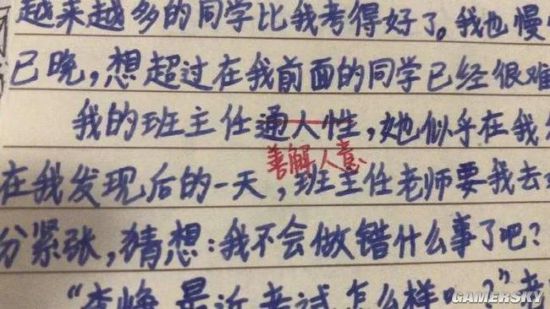 越来越多的同学比我考得好了。我也慢
已晚，想超过在我前面的同学已经很难
我的班主任通人性，她似乎在我
善解人意
在我发现后的一天，班主任老师要我去
分紧张，猜想：我不会做错什么事了吧？
最近考试怎么样
GAMERSKY